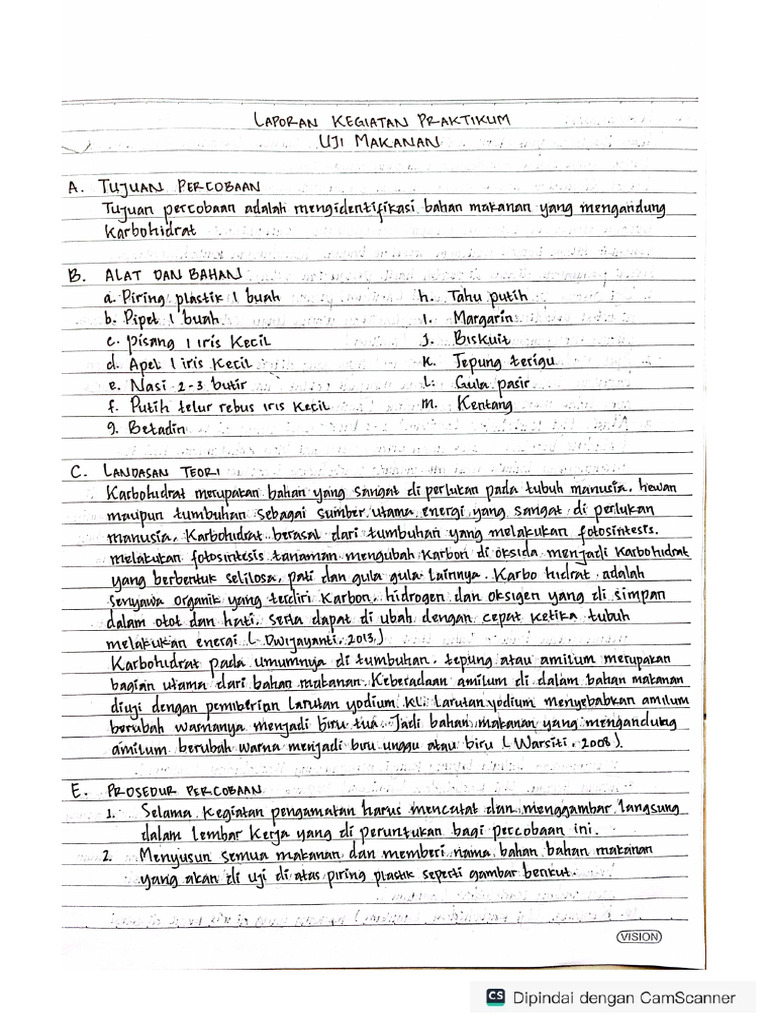 LAPORAN KEGIATAN PRAKTIKUM
UJI MAKANAN
A. TUJUAN PERCOBAAN
Tujuan percobaan adalah mengidentifikasi bahan makanan yang mengandung
karbohidrat
B. ALAT DAN BAHAN
a. Piring plastik 1 buah
b. Pipet 1 buah
c. pisang 1 iris kecil
d. Apel 1 iris kecil
e. Nasi 2-3 butir
f. Putih telur rebus iris kecil
g. Betadin
h. Tahu putih
i. Margarin
j. Biskuit
k. Tepung terigu
l. Gula pasir
m. Kentang
C. LANDASAN TEORI
Karbohidrat merupakan bahan yang sangat di perlukan pada tubuh manusia, hewan
maupun tumbuhan sebagai sumber utama energi yang sangat di perlukan
manusia. Karbohidrat berasal dari tumbuhan yang melakukan fotosintesis.
melakukan fotosintesis tanaman mengubah karbon di oksida menjadi karbohidrat
yang berbentuk selilosa, pati dan gula gula lainnya. Karbo hidrat adalah
senyawa organik yang terdiri karbon, hidrogen dan oksigen yang di simpan
dalam otot dan hati, serta dapat di ubah dengan cepat ketika tubuh
melakukan energi ( Dwijayanti, 2013)
Karbohidrat pada umumnya di tumbuhan, tepung atau amilum merupakan
bagian utama dari bahan makanan. Keberadaan amilum di dalam bahan makanan
diuji dengan pemberian larutan yodium KI. Larutan yodium menyebabkan amilum
berubah warnanya menjadi biru tua. Jadi bahan makanan yang mengandung
amilum berubah warna menjadi biru unggu atau biru ( Warsiti, 2008).
E. PROSEDUR PERCOBAAN
1. Selama kegiatan pengamatan harus mencatat dan menggambar langsung
dalam lembar kerja yang di peruntukan bagi percobaan ini.
2. Menyusun semua makanan dan memberi nama bahan bahan makanan
yang akan di uji di atas piring plastik seperti gambar berikut.
VISION
CS Dipindai dengan CamScanner